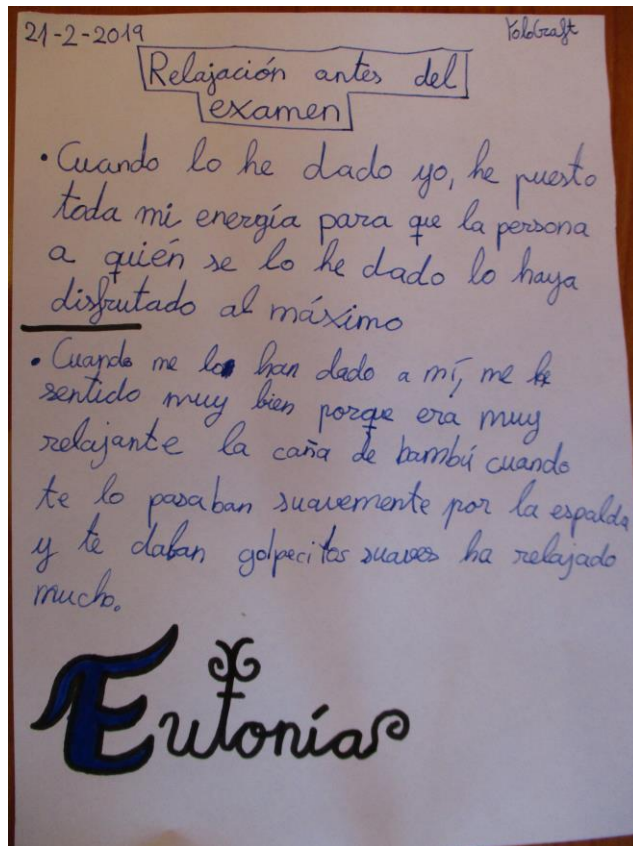 21-2-2019 YoloCraft
Relajación antes del
examen
• Cuando lo he dado yo, he puesto
toda mi energía para que la persona
a quién se lo he dado lo haya
disfrutado al máximo
• Cuando me lo han dado a mí, me he
sentido muy bien porque era muy
relajante la caña de bambú cuando
te lo pasaban suavemente por la espalda
y te daban golpecitos suaves ha relajado
mucho.
Eutonía